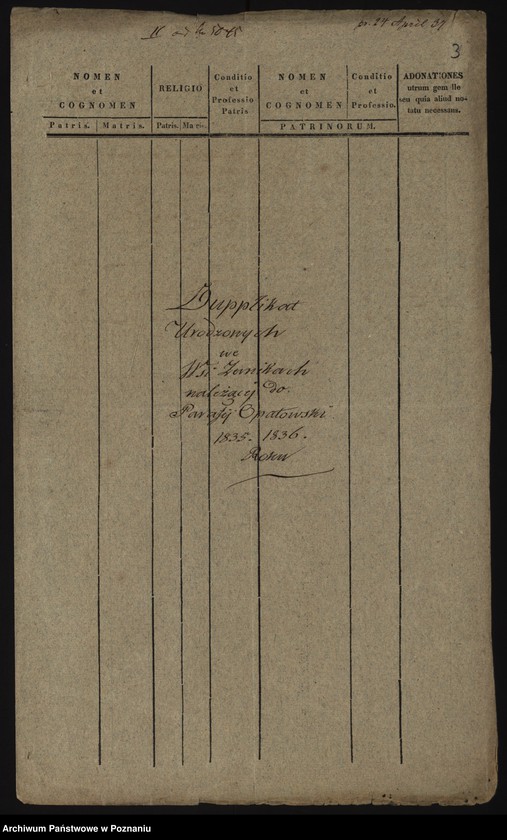 p. 24 April 37
3
NOMEN
et
COGNOMEN
Patris.
Matris.
RELIGIO
Patris.
Conditio
et
Professio
Patris
NOMEN
et
COGNOMEN
Conditio
et
Professio.
PATRINORUM.
ADONATIONES
utrum gem lle
seu quia aliud no-
tatu necessana.
Dupplikat
Urodzonych
we
Wsi Zernikach
należącej do
Parafij Opatowski
1835. 1836.
Roku
Archiwum Państwowe w Poznaniu